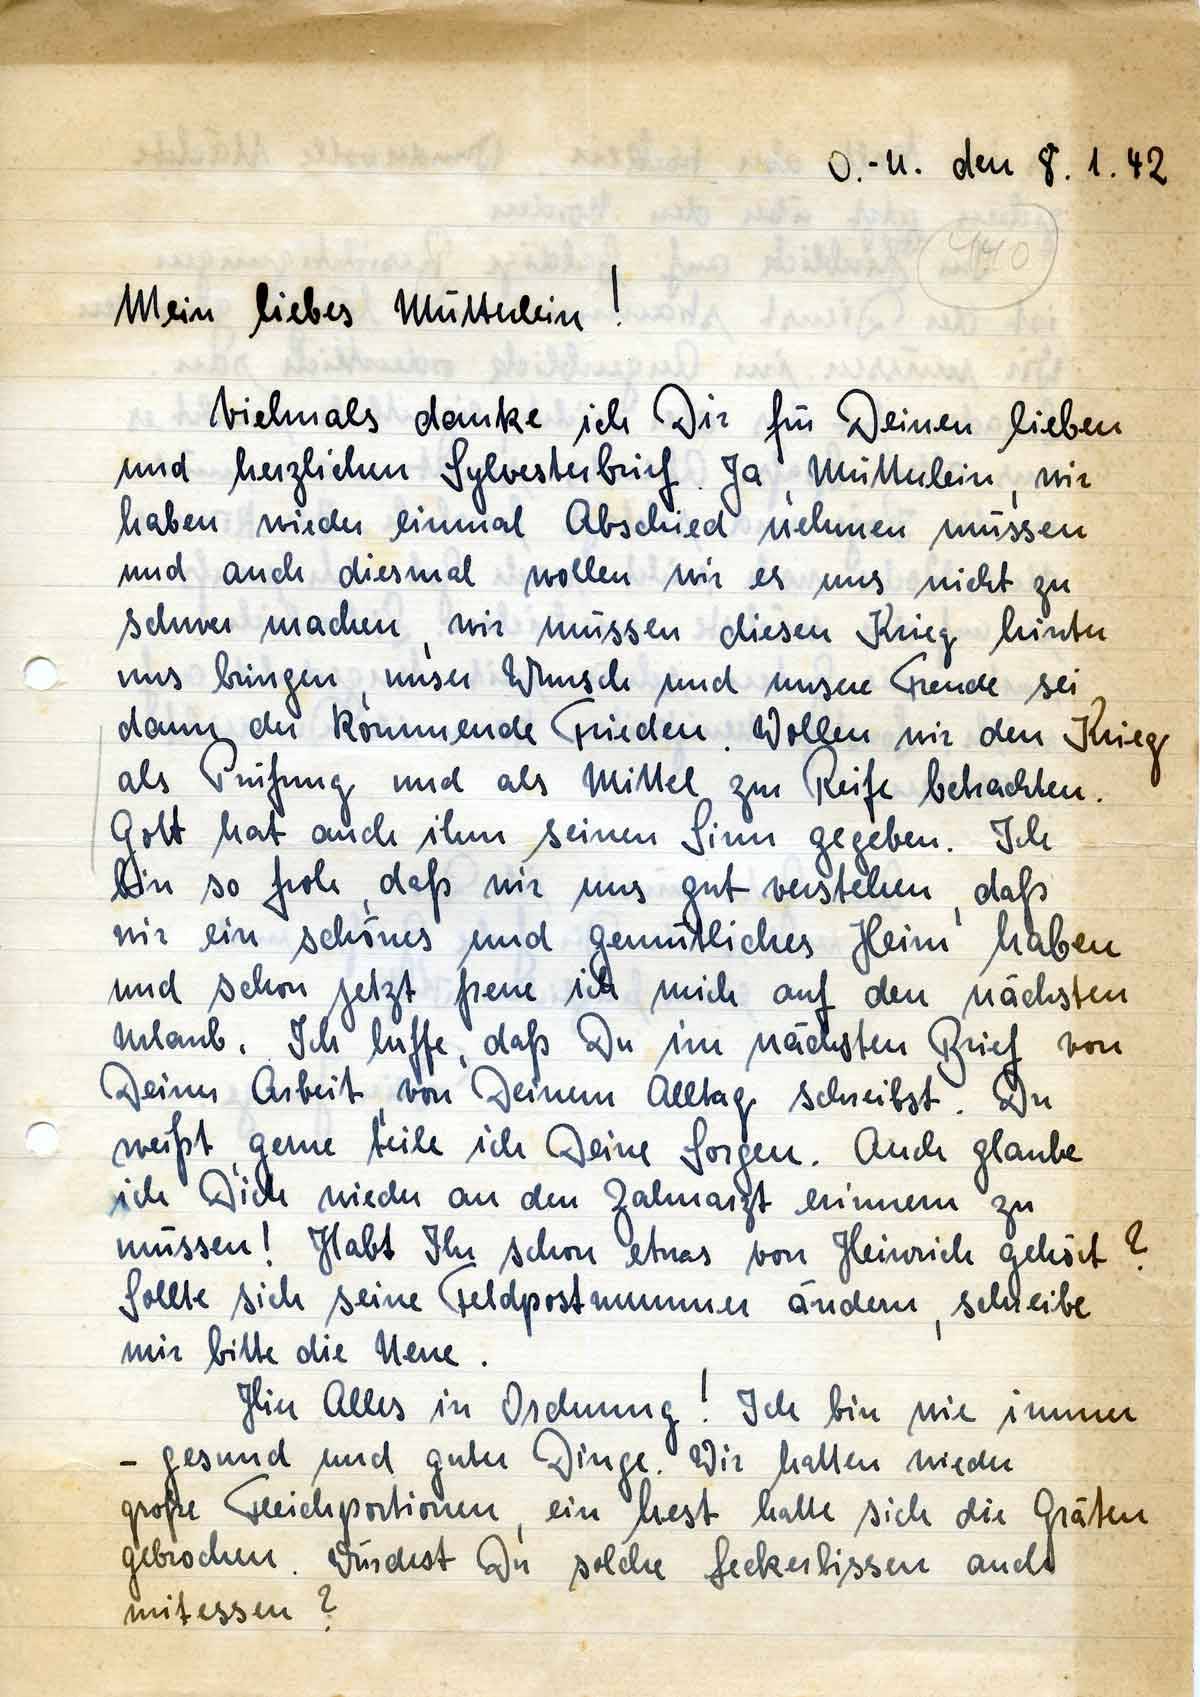 O.-U. den 8.1.42
440
Mein liebes Mütterlein!
Vielmals danke ich Dir für Deinen lieben
und herzlichen Sylvesterbrief. Ja, Mütterlein, wir
haben wieder einmal Abschied nehmen müssen
und auch diesmal wollen wir es uns nicht zu
schwer machen, wir müssen diesen Krieg hinter
uns bringen, unser Wunsch und unsere Freude sei
dann der kommende Frieden. Wollen wir den Krieg
als Prüfung und als Mittel zur Reife betrachten.
Gott hat auch ihm seinen Sinn gegeben. Ich
bin so froh, daß wir uns gut verstehen, daß
wir ein schönes und gemütliches Heim haben
und schon jetzt freue ich mich auf den nächsten
Urlaub. Ich hoffe, daß Du im nächsten Brief von
Deiner Arbeit, von Deinem Alltag schreibst. Du
weißt, gerne teile ich Deine Sorgen. Auch glaube
ich Dich wieder an den Zahnarzt erinnern zu
müssen! Habt Ihr schon etwas von Heinrich gehört?
Sollte sich seine Feldpostnummer ändern, schreibe
mir bitte die Neue.
Hier Alles in Ordnung! Ich bin wie immer
- gesund und guter Dinge. Wir hatten wieder
große Fleichportionen, ein hatte sich die Gräten
gebrochen. Würdest Du solche Leckerbissen auch
mitessen?